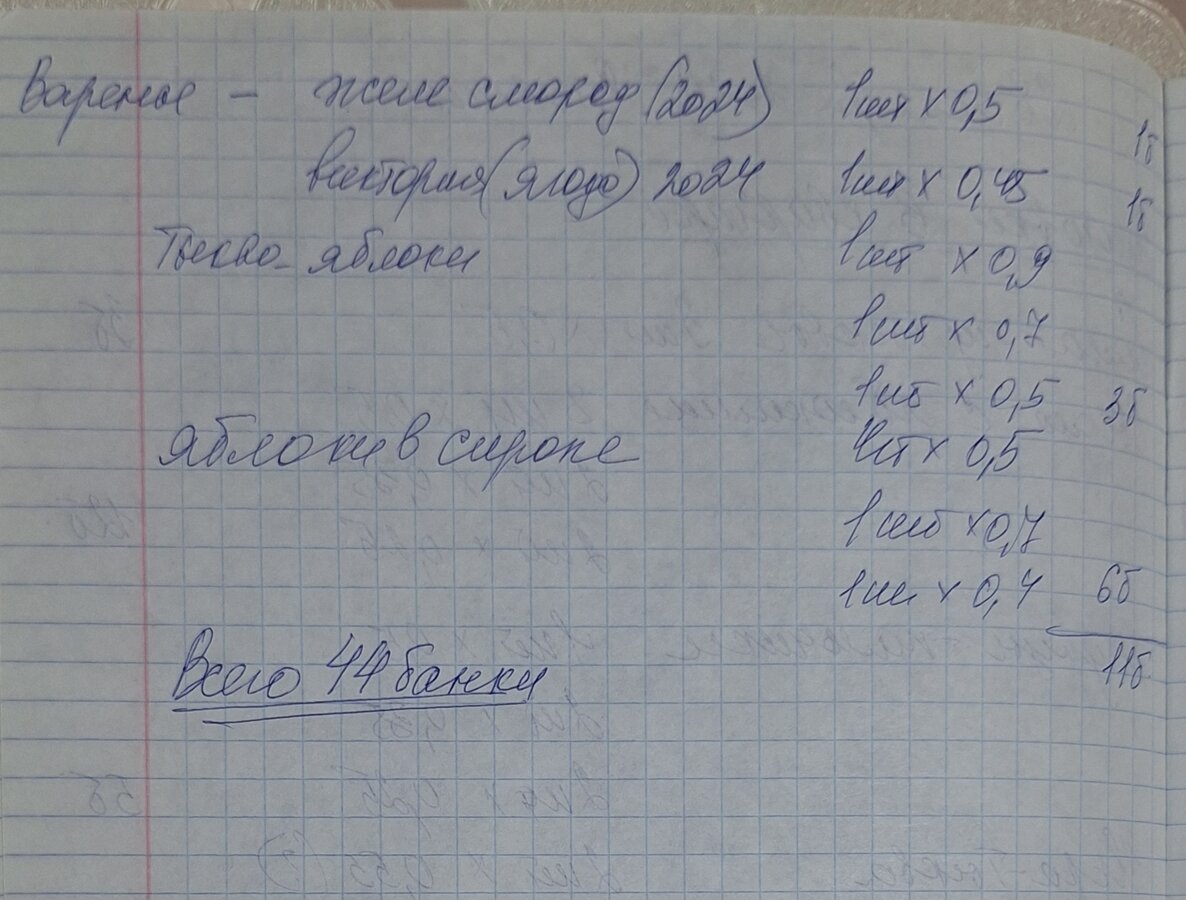 Варенье - желе смород (2024) 1шт х 0,5 1б
виктория (ягода) 2024 1шт х 0,45 1б
Тыква - яблоки 1шт х 0,9
1шт х 0,7
1шт х 0,5 3б
яблоки в сиропе 4шт х 0,5
1шт х 0,7
1шт х 0,4 6б
11б
Всего 44 банки